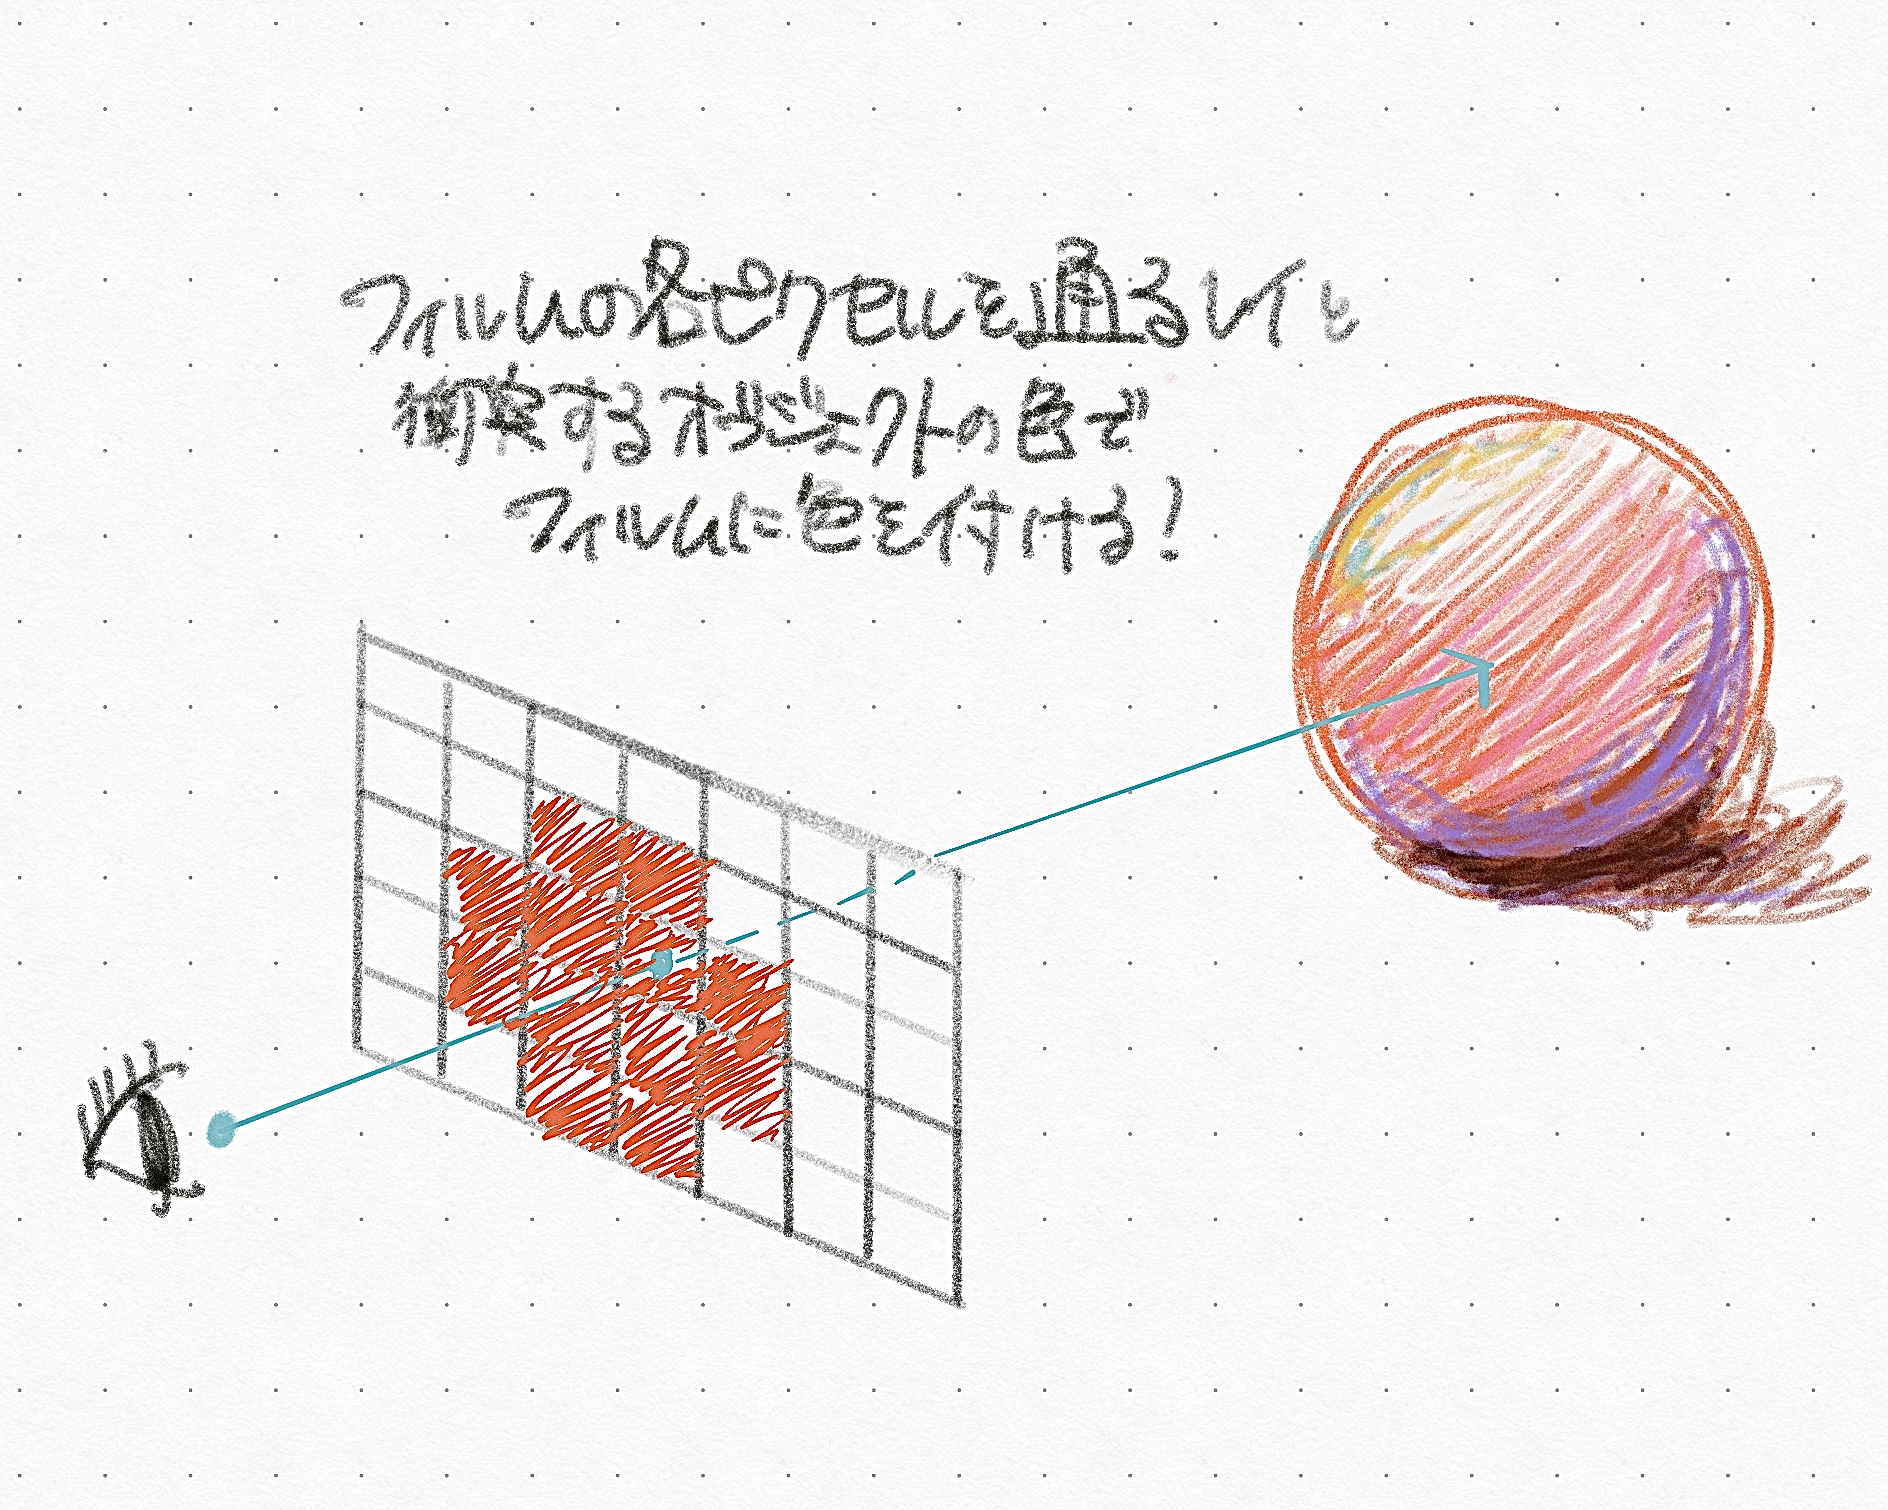 フィルムの各ピクセルを通るレイと
衝突するオブジェクトの色で
フィルムに色を付ける!